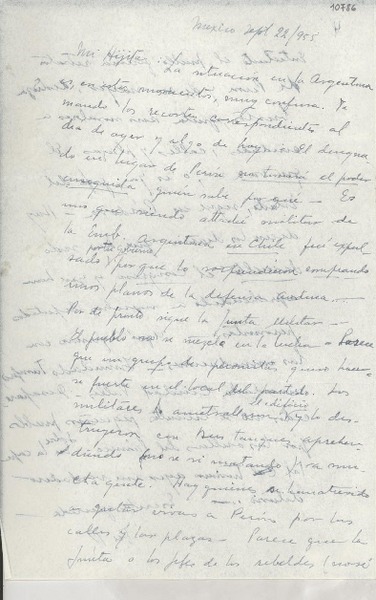 10786
4
Mexico Sept. 22/955
Mi Hijita:
La situacion en la Argentina
es en estos momentos, muy confusa. Te
mando los recortes correspondientes al
dia de ayer y al de hoy. El
do en lugar de el poder
enseguida, quien sabe por que — Es
uno que siendo attaché militar de
la Emb. Argentina en Chile fué expul-
sado porque lo sorprendieron comprando
unos planos de la defensa
Por de pronto sigue la Junta Militar.
El pueblo no se mezcla en la lucha. Parece
que un grupo de peronistas quiso hacer-
se fuerte en el local del partido. Los
militares lo ametrallaron y lo des-
truyeron con sus tanques
diendo (no se si matando) a mu-
cha gente. Hay quienes
vivas a Perón por las
calles y las plazas — Parece que la
Junta a los jefes de los rebeldes (no sé